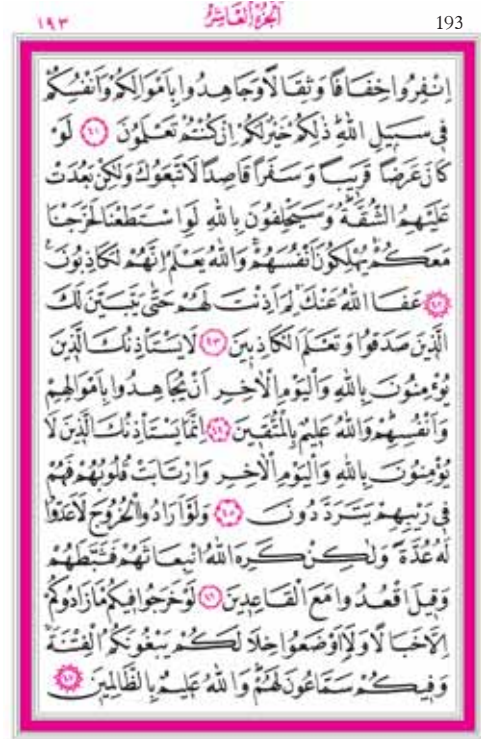 ١٩٣ الجزء العاشر 193
اِنْفِرُوا خِفَافًا وَثِقَالًا وَجَاهِدُوا بِاَمْوَالِكُمْ وَاَنْفُسِكُمْ
فٖى سَبٖيلِ اللّٰهِ ذٰلِكُمْ خَيْرٌ لَكُمْ اِنْ كُنْتُمْ تَعْلَمُونَ ﴿٤١﴾ لَوْ
كَانَ عَرَضًا قَرٖيبًا وَسَفَرًا قَاصِدًا لَاتَّبَعُوكَ وَلٰكِنْ بَعُدَتْ
عَلَيْهِمُ الشُّقَّةُ وَسَيَحْلِفُونَ بِاللّٰهِ لَوِ اسْتَطَعْنَا لَخَرَجْنَا
مَعَكُمْ يُهْلِكُونَ اَنْفُسَهُمْ وَاللّٰهُ يَعْلَمُ اِنَّهُمْ لَكَاذِبُونَ
﴿٤٢﴾ عَفَا اللّٰهُ عَنْكَ لِمَ اَذِنْتَ لَهُمْ حَتّٰى يَتَبَيَّنَ لَكَ
الَّذٖينَ صَدَقُوا وَتَعْلَمَ الْكَاذِبٖينَ ﴿٤٣﴾ لَا يَسْتَاْذِنُكَ الَّذٖينَ
يُؤْمِنُونَ بِاللّٰهِ وَالْيَوْمِ الْاٰخِرِ اَنْ يُجَاهِدُوا بِاَمْوَالِهِمْ
وَاَنْفُسِهِمْ وَاللّٰهُ عَلٖيمٌ بِالْمُتَّقٖينَ ﴿٤٤﴾ اِنَّمَا يَسْتَاْذِنُكَ الَّذٖينَ لَا
يُؤْمِنُونَ بِاللّٰهِ وَالْيَوْمِ الْاٰخِرِ وَارْتَابَتْ قُلُوبُهُمْ فَهُمْ
فٖى رَيْبِهِمْ يَتَرَدَّدُونَ ﴿٤٥﴾ وَلَوْ اَرَادُوا الْخُرُوجَ لَاَعَدُّوا
لَهُ عُدَّةً وَلٰكِنْ كَرِهَ اللّٰهُ انْبِعَاثَهُمْ فَثَبَّطَهُمْ
وَقٖيلَ اقْعُدُوا مَعَ الْقَاعِدٖينَ ﴿٤٦﴾ لَوْ خَرَجُوا فٖيكُمْ مَا زَادُوكُمْ
اِلَّا خَبَالًا وَلَاَاوْضَعُوا خِلَالَكُمْ يَبْغُونَكُمُ الْفِتْنَةَ
وَفٖيكُمْ سَمَّاعُونَ لَهُمْ وَاللّٰهُ عَلٖيمٌ بِالظَّالِمٖينَ ﴿٤٧﴾